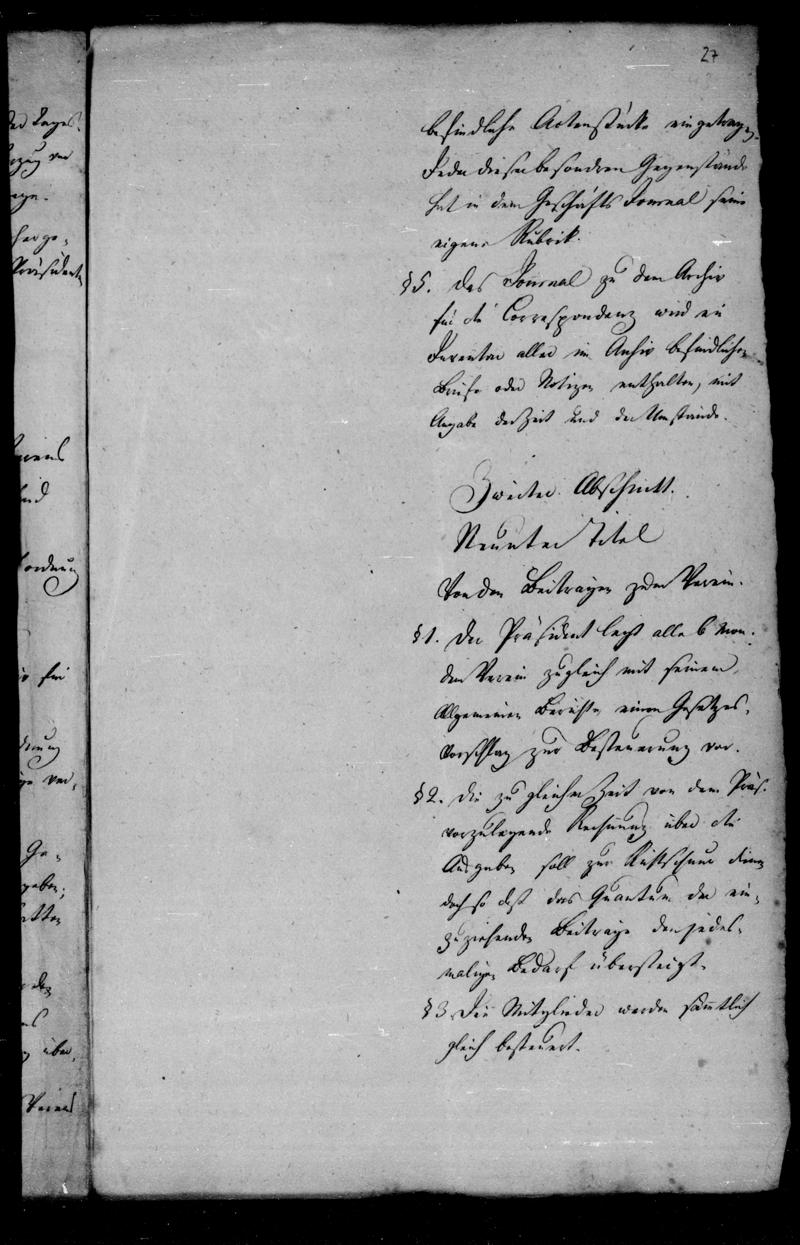 27
befindliche Actenstücke eingetragen.
Jeder dieser besondren Gegenstände
hat in dem Geschäfts Journal seine
eigene Rubrik.
§5. Das Journal zu dem Archiv
für die Correspondenz wird ein
Inventar aller im Archiv befindlichen
Briefe oder Notizen enthalten, mit
Angabe der Zeit und der Umstände.
Zweiter Abschnitt.
Neunter Titel
Von den Beiträgen zum Verein.
§1. Der Präsident legt alle 6 Mon.
dem Verein zugleich mit seinem
Allgemeinen Berichte einen Gesetzes-
vorschlag zur Besteuerung vor.
§2. Die zu gleicher Zeit von dem Präs.
vorzulegende Rechnung über die
Ausgaben soll zur Richtschnur dienen
doch so daß das Quantum der ein-
zuziehenden Beiträge den jedes-
maligen Bedarf übersteigt.
§3. Die Mitglieder werden sämtlich
gleich besteuert.